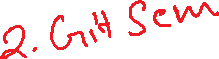 2. Gitt Sem